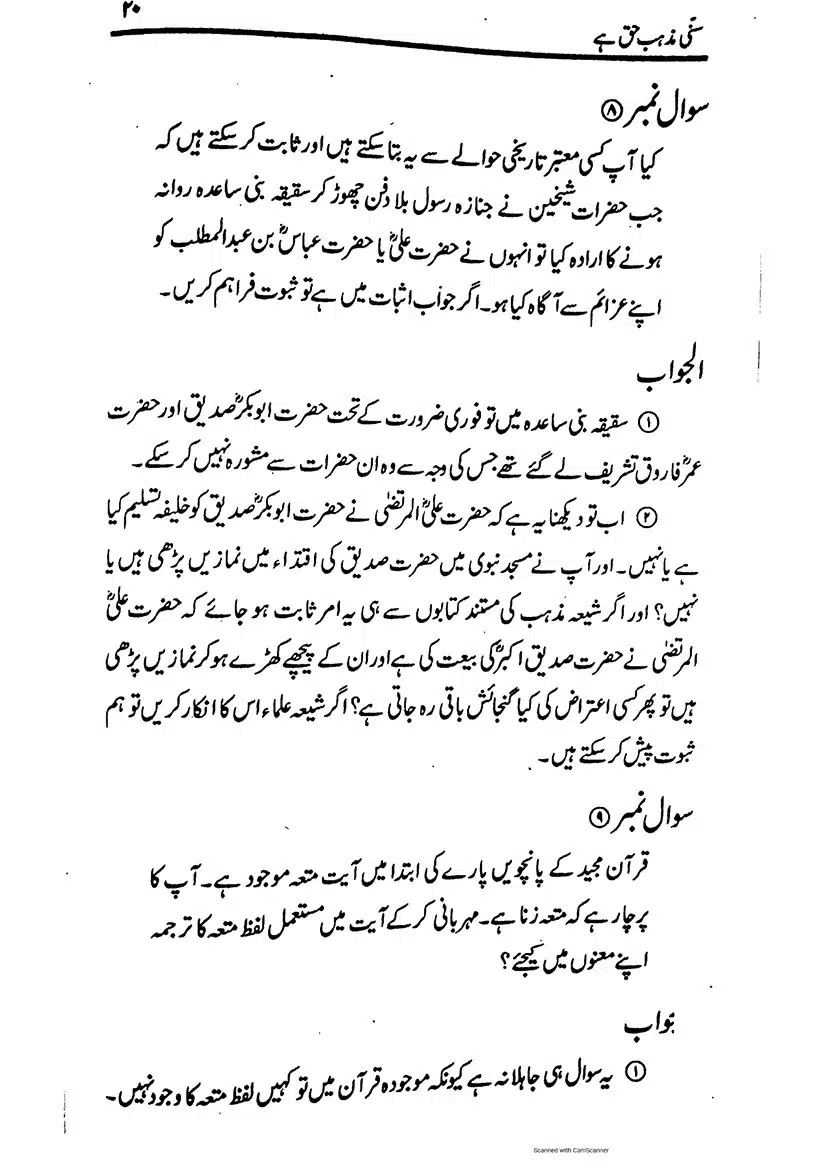 ۲۰
سنی مذہب حق ہے
سوال نمبر ⑧
کیا آپ کسی معتبر تاریخی حوالے سے یہ بتا سکتے ہیں اور ثابت کر سکتے ہیں کہ
جب حضرات شیخین نے جنازہ رسول بلا دفن چھوڑ کر سقیفہ بنی ساعدہ روانہ
ہونے کا ارادہ کیا تو انہوں نے حضرت علیؓ یا حضرت عباسؓ بن عبدالمطلب کو
اپنے عزائم سے آگاہ کیا ہو۔ اگر جواب اثبات میں ہے تو ثبوت فراہم کریں۔
الجواب
① سقیفہ بنی ساعدہ میں تو فوری ضرورت کے تحت حضرت ابوبکرؓ صدیق اور حضرت
عمرؓ فاروق تشریف لے گئے تھے جس کی وجہ سے وہ ان حضرات سے مشورہ نہیں کر سکے۔
② اب تو دیکھنا یہ ہے کہ حضرت علیؓ المرتضیٰ نے حضرت ابوبکرؓ صدیق کو خلیفہ تسلیم کیا
ہے یا نہیں۔ اور آپ نے مسجد نبوی میں حضرت صدیق کی اقتداء میں نمازیں پڑھی ہیں یا
نہیں؟ اور اگر شیعہ مذہب کی مستند کتابوں سے ہی یہ امر ثابت ہو جائے کہ حضرت علیؓ
المرتضیٰ نے حضرت صدیق اکبرؓ کی بیعت کی ہے اور ان کے پیچھے کھڑے ہو کر نمازیں پڑھی
ہیں تو پھر کسی اعتراض کی کیا گنجائش باقی رہ جاتی ہے؟ اگر شیعہ علماء اس کا انکار کریں تو ہم
ثبوت پیش کر سکتے ہیں۔
سوال نمبر ⑨
قرآن مجید کے پانچویں پارے کی ابتدا میں آیت متعہ موجود ہے۔ آپ کا
پرچار ہے کہ متعہ زنا ہے۔ مہربانی کر کے آیت میں مستعمل لفظ متعہ کا ترجمہ
اپنے معنوں میں کیجئے؟
جواب
① یہ سوال ہی جاہلانہ ہے کیونکہ موجودہ قرآن میں تو کہیں لفظ متعہ کا وجود نہیں۔
Scanned with CamScanner